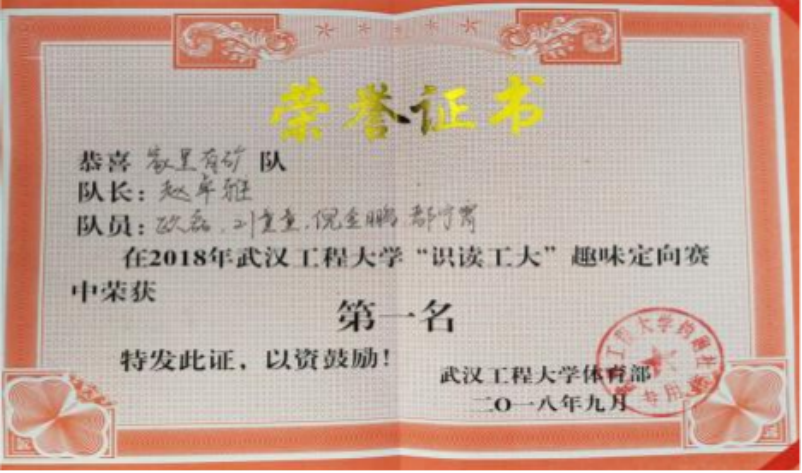 荣誉证书
恭喜 家里有矿 队
队长：赵卓雅
队员：欧磊、刘童童、倪金鹏、
在2018年武汉工程大学“识读工大”趣味定向赛
中荣获
第一名
特发此证，以资鼓励！
武汉工程大学体育部
二〇一八年九月
专用